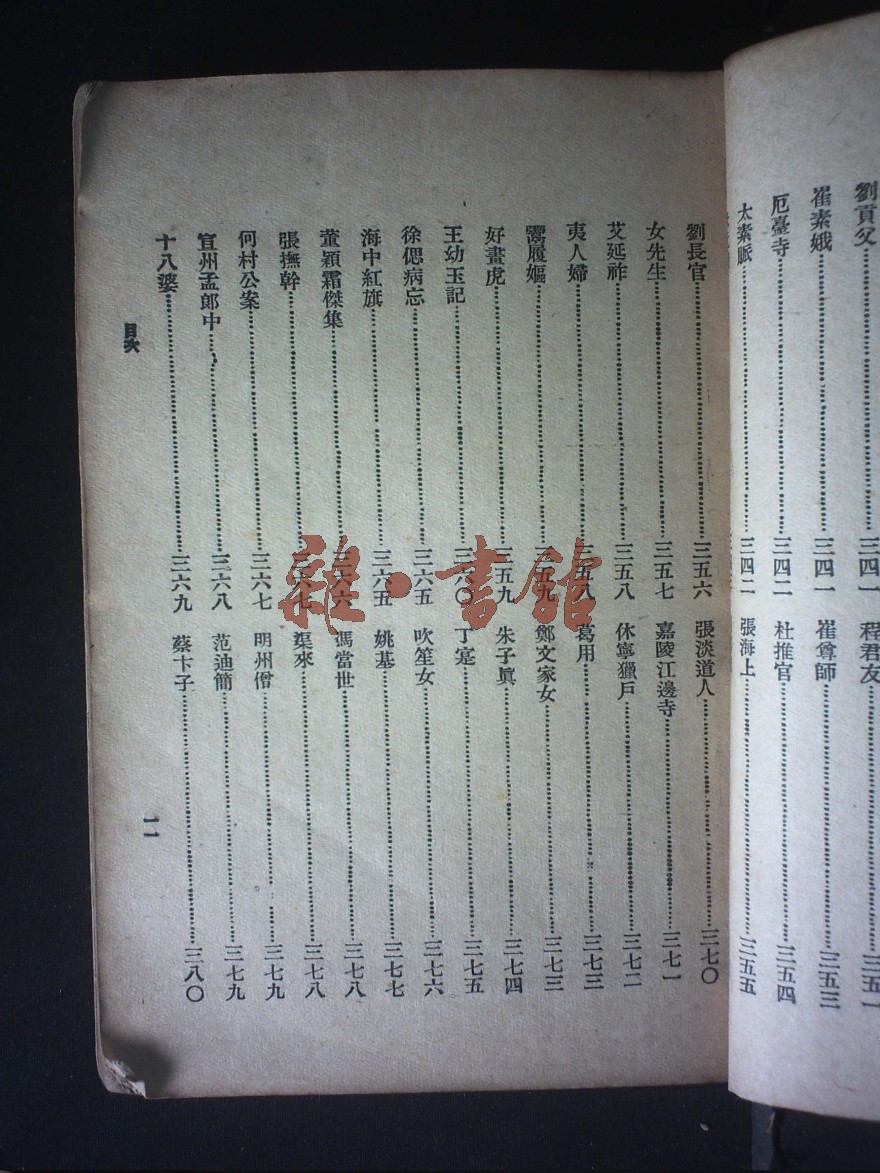 劉貢父……三四一 程君友……三五一
崔素娥……三四一 崔尊師……三五三
厄臺寺……三四二 杜推官……三五四
太素脈……三四二 張海上……三五五
劉長官……三五六 張淡道人……三七〇
女先生……三五七 嘉陵江邊寺……三七一
艾延祚……三五八 休寧獵戶……三七二
夷人婦……三五八 葛用……三七三
鬻履嫗……三五九 鄭文家女……三七三
好畫虎……三五九 朱子眞……三七四
王幼玉記……三六〇 丁寔……三七五
徐偲病忘……三六五 吹笙女……三七六
海中紅旗……三六五 姚基……三七七
董穎霜傑集……三六六 馮當世……三七八
張撫幹……三六七 渠來……三七八
何村公案……三六七 明州僧……三七九
宣州孟郎中……三六八 范迪簡……三七九
十八婆……三六九 蔡卞子……三八〇
目次 一一
雜·書館